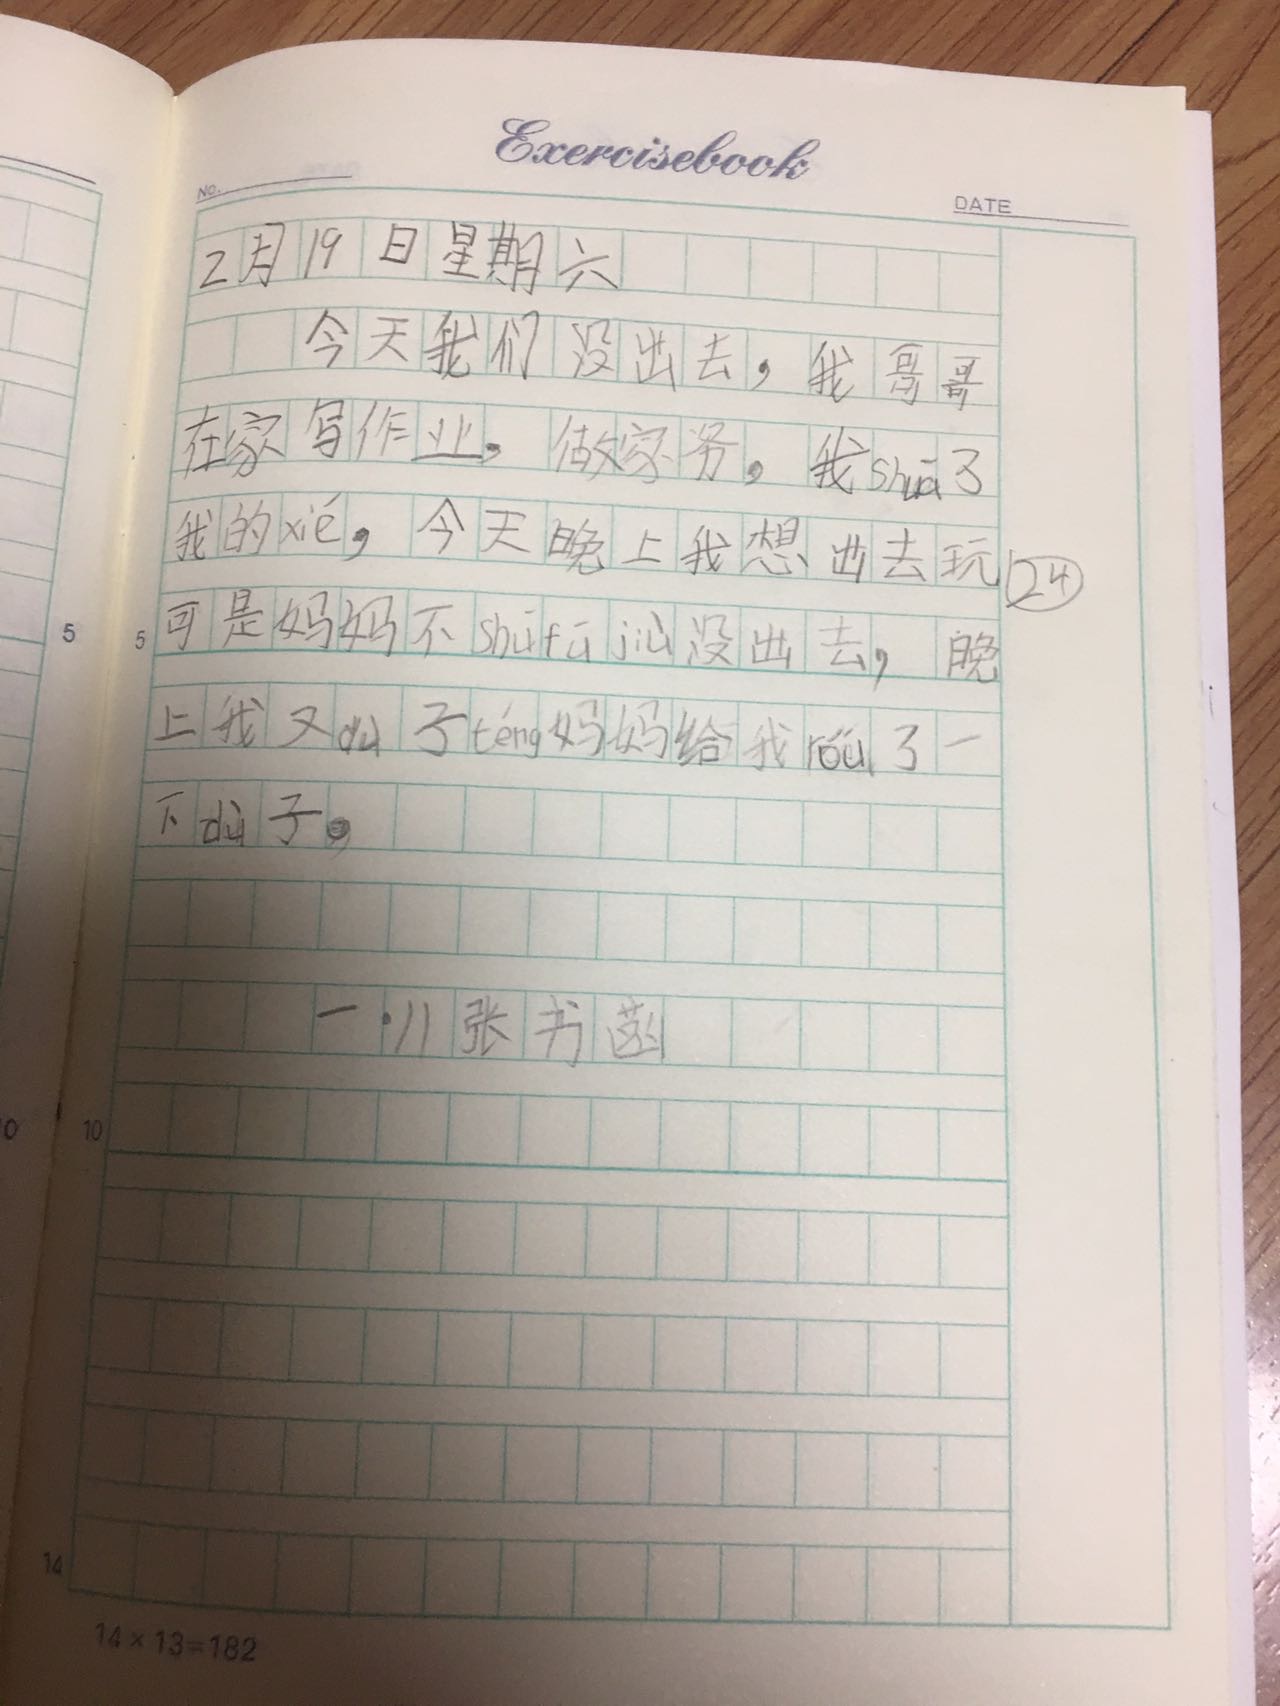 Exercisebook
No.
DATE
2月19日星期六
今天我们没出去，我哥哥
在家写作业，做家务，我shuā了
我的xié，今天晚上我想出去玩
24
可是妈妈不shūfú jiù没出去，晚
5
5
上我又dù子téng妈妈给我róu了一
下dù子。
一·八张书菡
10
10
14
14×13=182